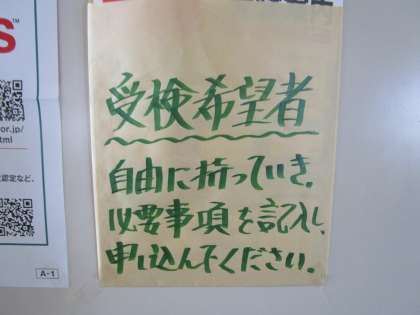 S
or.jp/
tml
認定など、
A-1
受検希望者
自由に持っていき、
必要事項を記入し、
申し込んで下ください。